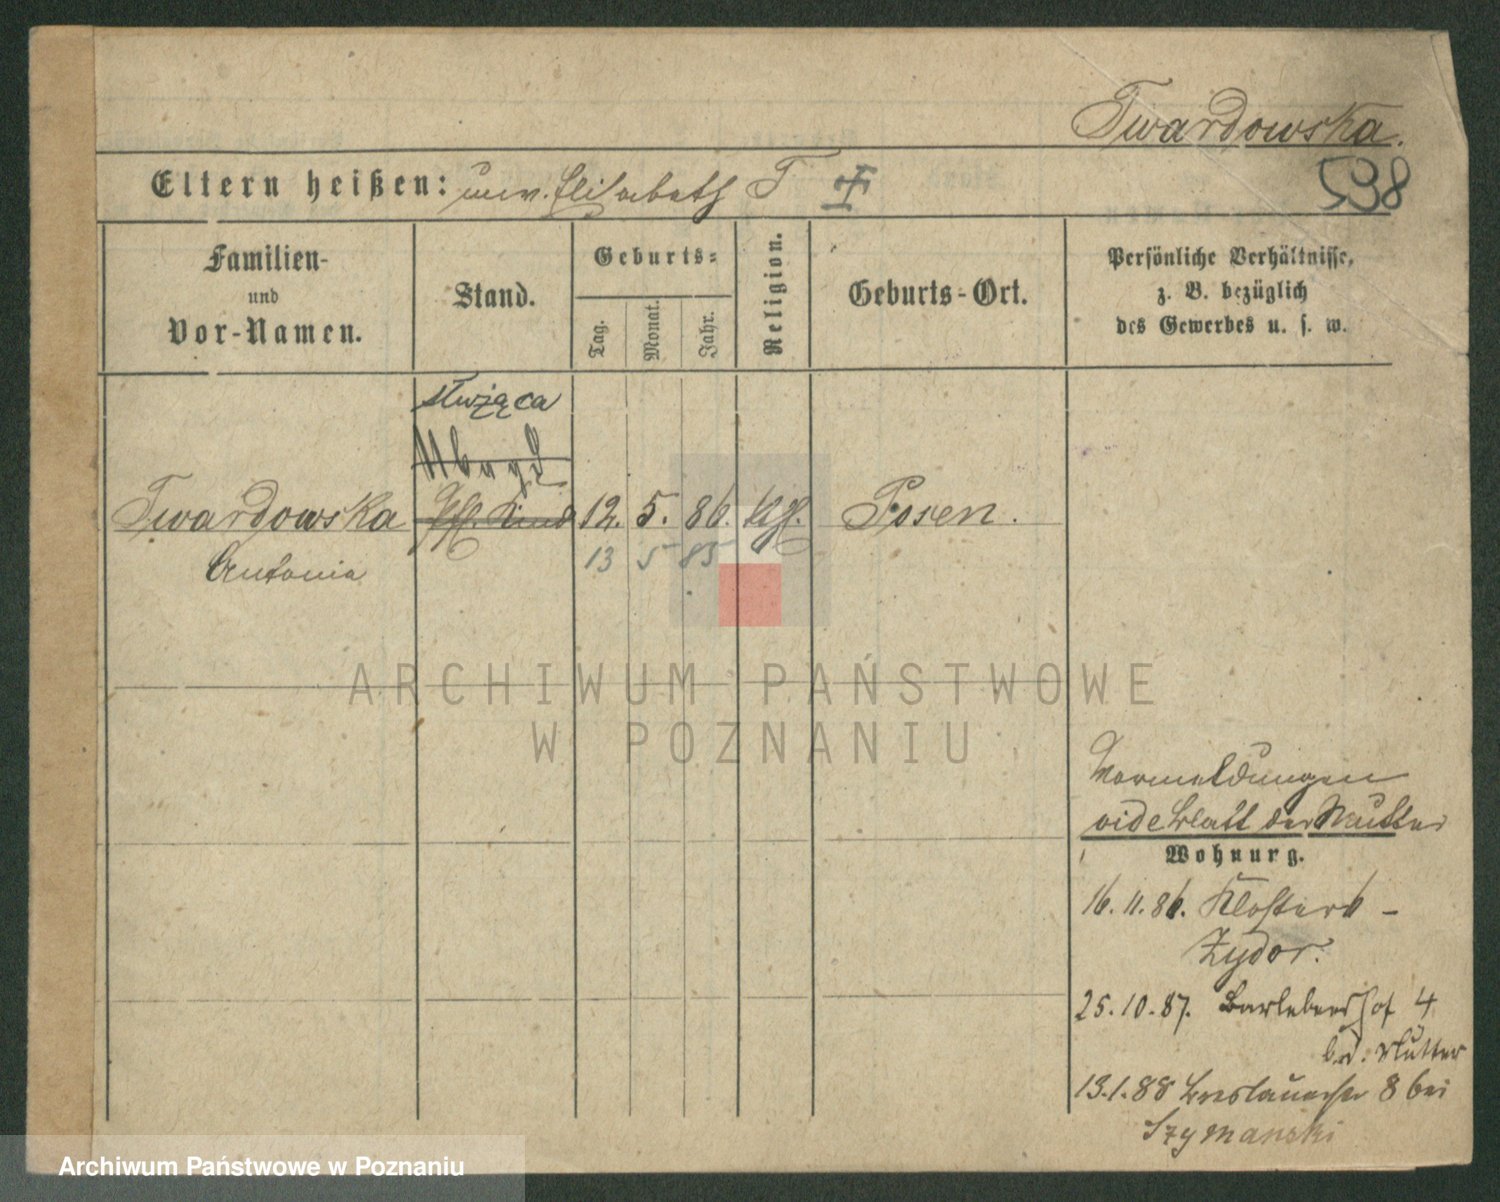 Twardowska.
538
Eltern heißen: unv. Elisabeth T
Familien-
und
Vor-Namen.
Stand.
Geburts-
Tag.
Monat.
Jahr.
Religion.
Geburts-Ort.
Persönliche Verhältnisse,
z. B. bezüglich
des Gewerbes u. s. w.
służąca
Twardowska
Kind 12. 5. 86. kth. Posen.
Antonia
13 5 85
Vormeldungen
vide Blatt der Mutter
Wohnung.
16. 11. 86. Klosterk -
Zydor.
25. 10. 87. Barlebenshof 4
bei Mutter
13. 1. 88 Breslauerstr 8 bei
Szymanski
ARCHIWUM PAŃSTWOWE
W POZNANIU
Archiwum Państwowe w Poznaniu